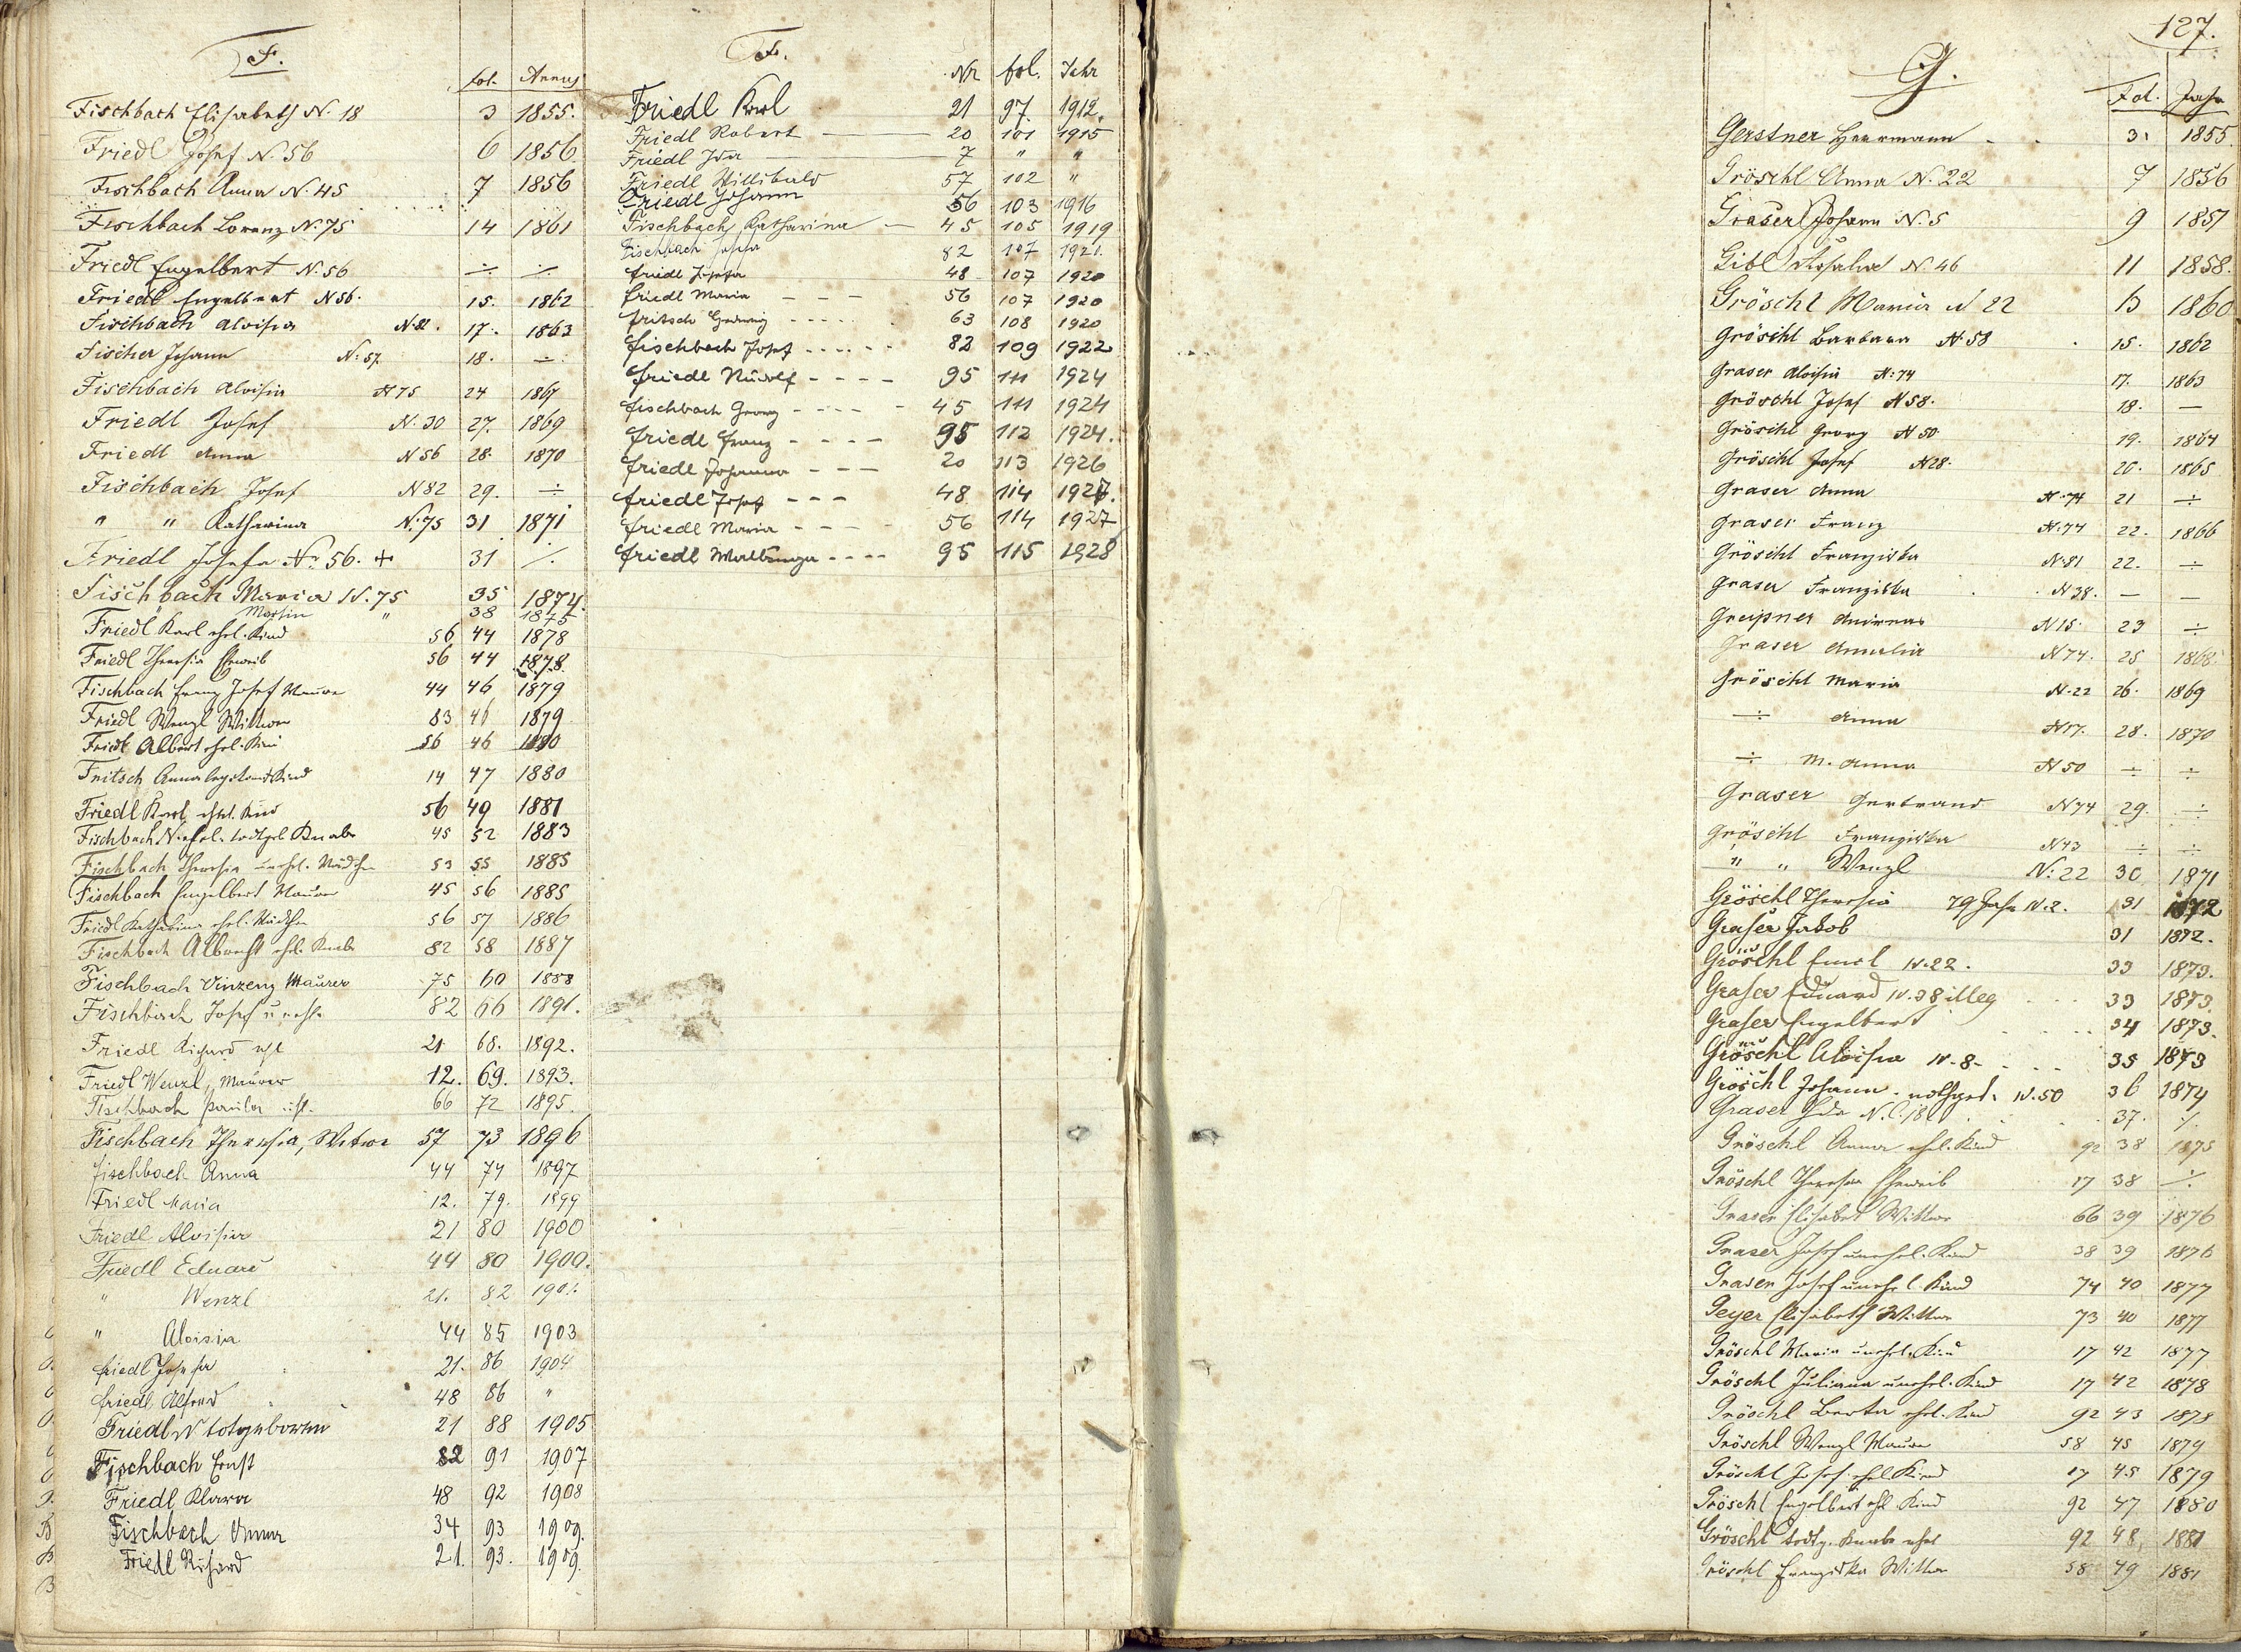 F.
fol. Annus
Fischbach Elisabeth N. 18 3 1855.
Friedl Josef N. 56 6 1856
Fischbach Anna N. 45 7 1856
Fischbach Lorenz N. 75 14 1861
Friedl Engelbert N. 56 ÷ ÷
Friedl Engelbert N 56. 15. 1862
Fischbach Aloisia N. 82. 17. 1863
Fischer Johann N: 57 18. ÷
Fischbach Aloisia N 75 24 1867
Friedl Josef N. 30 27. 1869
Friedl Anna N 56 28. 1870
Fischbach Josef N 82 29. ÷
" " Katharina N. 75 31 1871
Friedl Josefa No. 56. + 31 ./.
Fischbach Maria N. 75 35 1874.
" Martin " 38 1875
Friedl Karl ehl. Kind 56 44 1878
Friedl Theresia Eheweib 56 44 1878
Fischbach Franz Josef Maurer 44 46 1879
Friedl Wenzl Wittwer 83 46 1879
Friedl Albert ehel. Kind 56 46 1880
Fritsch Anna Kind 14 47 1880
Friedl Karl ehel. Kind 56 49 1881
Fischbach N. ehel. todtgeb Knabe 45 52 1883
Fischbach Theresia unehl. Mädchen 53 55 1885
Fischbach Engelbert Maurer 45 56 1885
Friedl Katharina ehel. Mädchen 56 57 1886
Fischbach Albrecht ehl. Knabe 82 58 1887
Fischbach Vinzenz Maurer 75 60 1888
Fischbach Josef unehl. 82 66 1891.
Friedl Richard ehl 21 68. 1892.
Friedl Wenzl, Maurer 12. 69. 1893.
Fischbach Paula 66 72 1895.
Fischbach Theresia, Witwe 57 73 1896
Fischbach Anna 44 74 1897
Friedl Maria 12. 79. 1899
Friedl Aloisia 21 80 1900
Friedl Eduard 44 80 1900.
" Wenzl 21. 82 1901.
" Aloisia 44 85 1903
Friedl Josefa 21. 86 1904
Friedl Alfred 48 86 "
Friedl N totgeboren 21 88 1905
Fischbach Ernst 82 91 1907
Friedl Klara 48 92 1908
Fischbach Anna 34 93 1909.
Friedl Richard 21. 93. 1909.
F.
Nr fol. Jahr
Friedl Karl 21 97. 1912.
Friedl Robert 20 101 1915
Friedl Ida 7 " "
Friedl Willibald 57 102 "
Friedl Johann 56 103 1916
Fischbach Katharina 45 105 1919
Fischbach Josefa 82 107 1921.
Friedl Josefa 48 107 1920
Friedl Maria 56 107 1920
Fritsch Hedwig 63 108 1920
Fischbach Josef 82 109 1922
Friedl Rudolf 95 111 1924
Fischbach Georg 45 111 1924
Friedl Franz 95 112 1924.
Friedl Johanna 20 113 1926
Friedl Josef 48 114 1927.
Friedl Maria 56 114 1927
Friedl Walburga 95 115 1928
127.
G.
Fol. Jahr
Gerstner Herrmann 3. 1855.
Gröschl Anna N. 22 7 1856
Graser Johann N. 5 9 1857
Gibl Rosalia N. 46 11 1858.
Gröschl Maria N 22 13 1860
Gröschl Barbara N. 58 15. 1862
Graser Aloisia N: 74 17. 1863
Gröschl Josef N 58. 18. —
Gröschl Georg N 50 19. 1864
Gröschl Josef N 28. 20. 1865
Graser Anna N. 74 21 ÷
Graser Franz N. 74 22. 1866
Gröschl Franziska N. 81 22. ÷
Graser Franziska N 38. — —
Greipner Andreas N 15. 23 ÷
Graser Amalia N 74. 25 1868.
Gröschl Maria N. 22 26. 1869
÷ Anna N 17. 28. 1870
÷ M. Anna N 50 ÷ ÷
Graser Gertraud N 74 29. ÷
Gröschl Franziska N 43 ÷ ÷
" " Wenzl N: 22 30 1871
Gröschl Theresia 79 Jahr N. 2. 31 1872
Graser Jakob 31 1872.
Gröschl Emil N. 22. 33 1873.
Graser Eduard N. 38 illeg 33 1873.
Graser Engelbert 34 1873.
Gröschl Aloisia N. 8. 35 1873
Gröschl Johann. nothget. N. 50 36 1874
Graser Ida N. C. 18 37. ./.
Gröschl Anna ehel. Kind 92 38 1875
Gröschl Theresia Eheweib 17 38 ./.
Graser Elisabet Wittwe 66 39 1876
Graser Josef unehel. Kind 38 39 1876
Graser Josef unehel. Kind 74 40 1877
Geyer Elisabeth Wittwe 73 40 1877
Gröschl Maria unehel. Kind 17 42 1877
Gröschl Juliana unehel. Kind 17 42 1878
Gröschl Berta ehel. Kind 92 43 1878
Gröschl Wenzl Maurer 58 45 1879
Gröschl Josef ehel Kind 17 45 1879
Gröschl Engelbert ehl Kind 92 47 1880
Gröschl todtg. Knabe ehel 92 48 1881
Gröschl Franziska Wittwe 58 49 1881